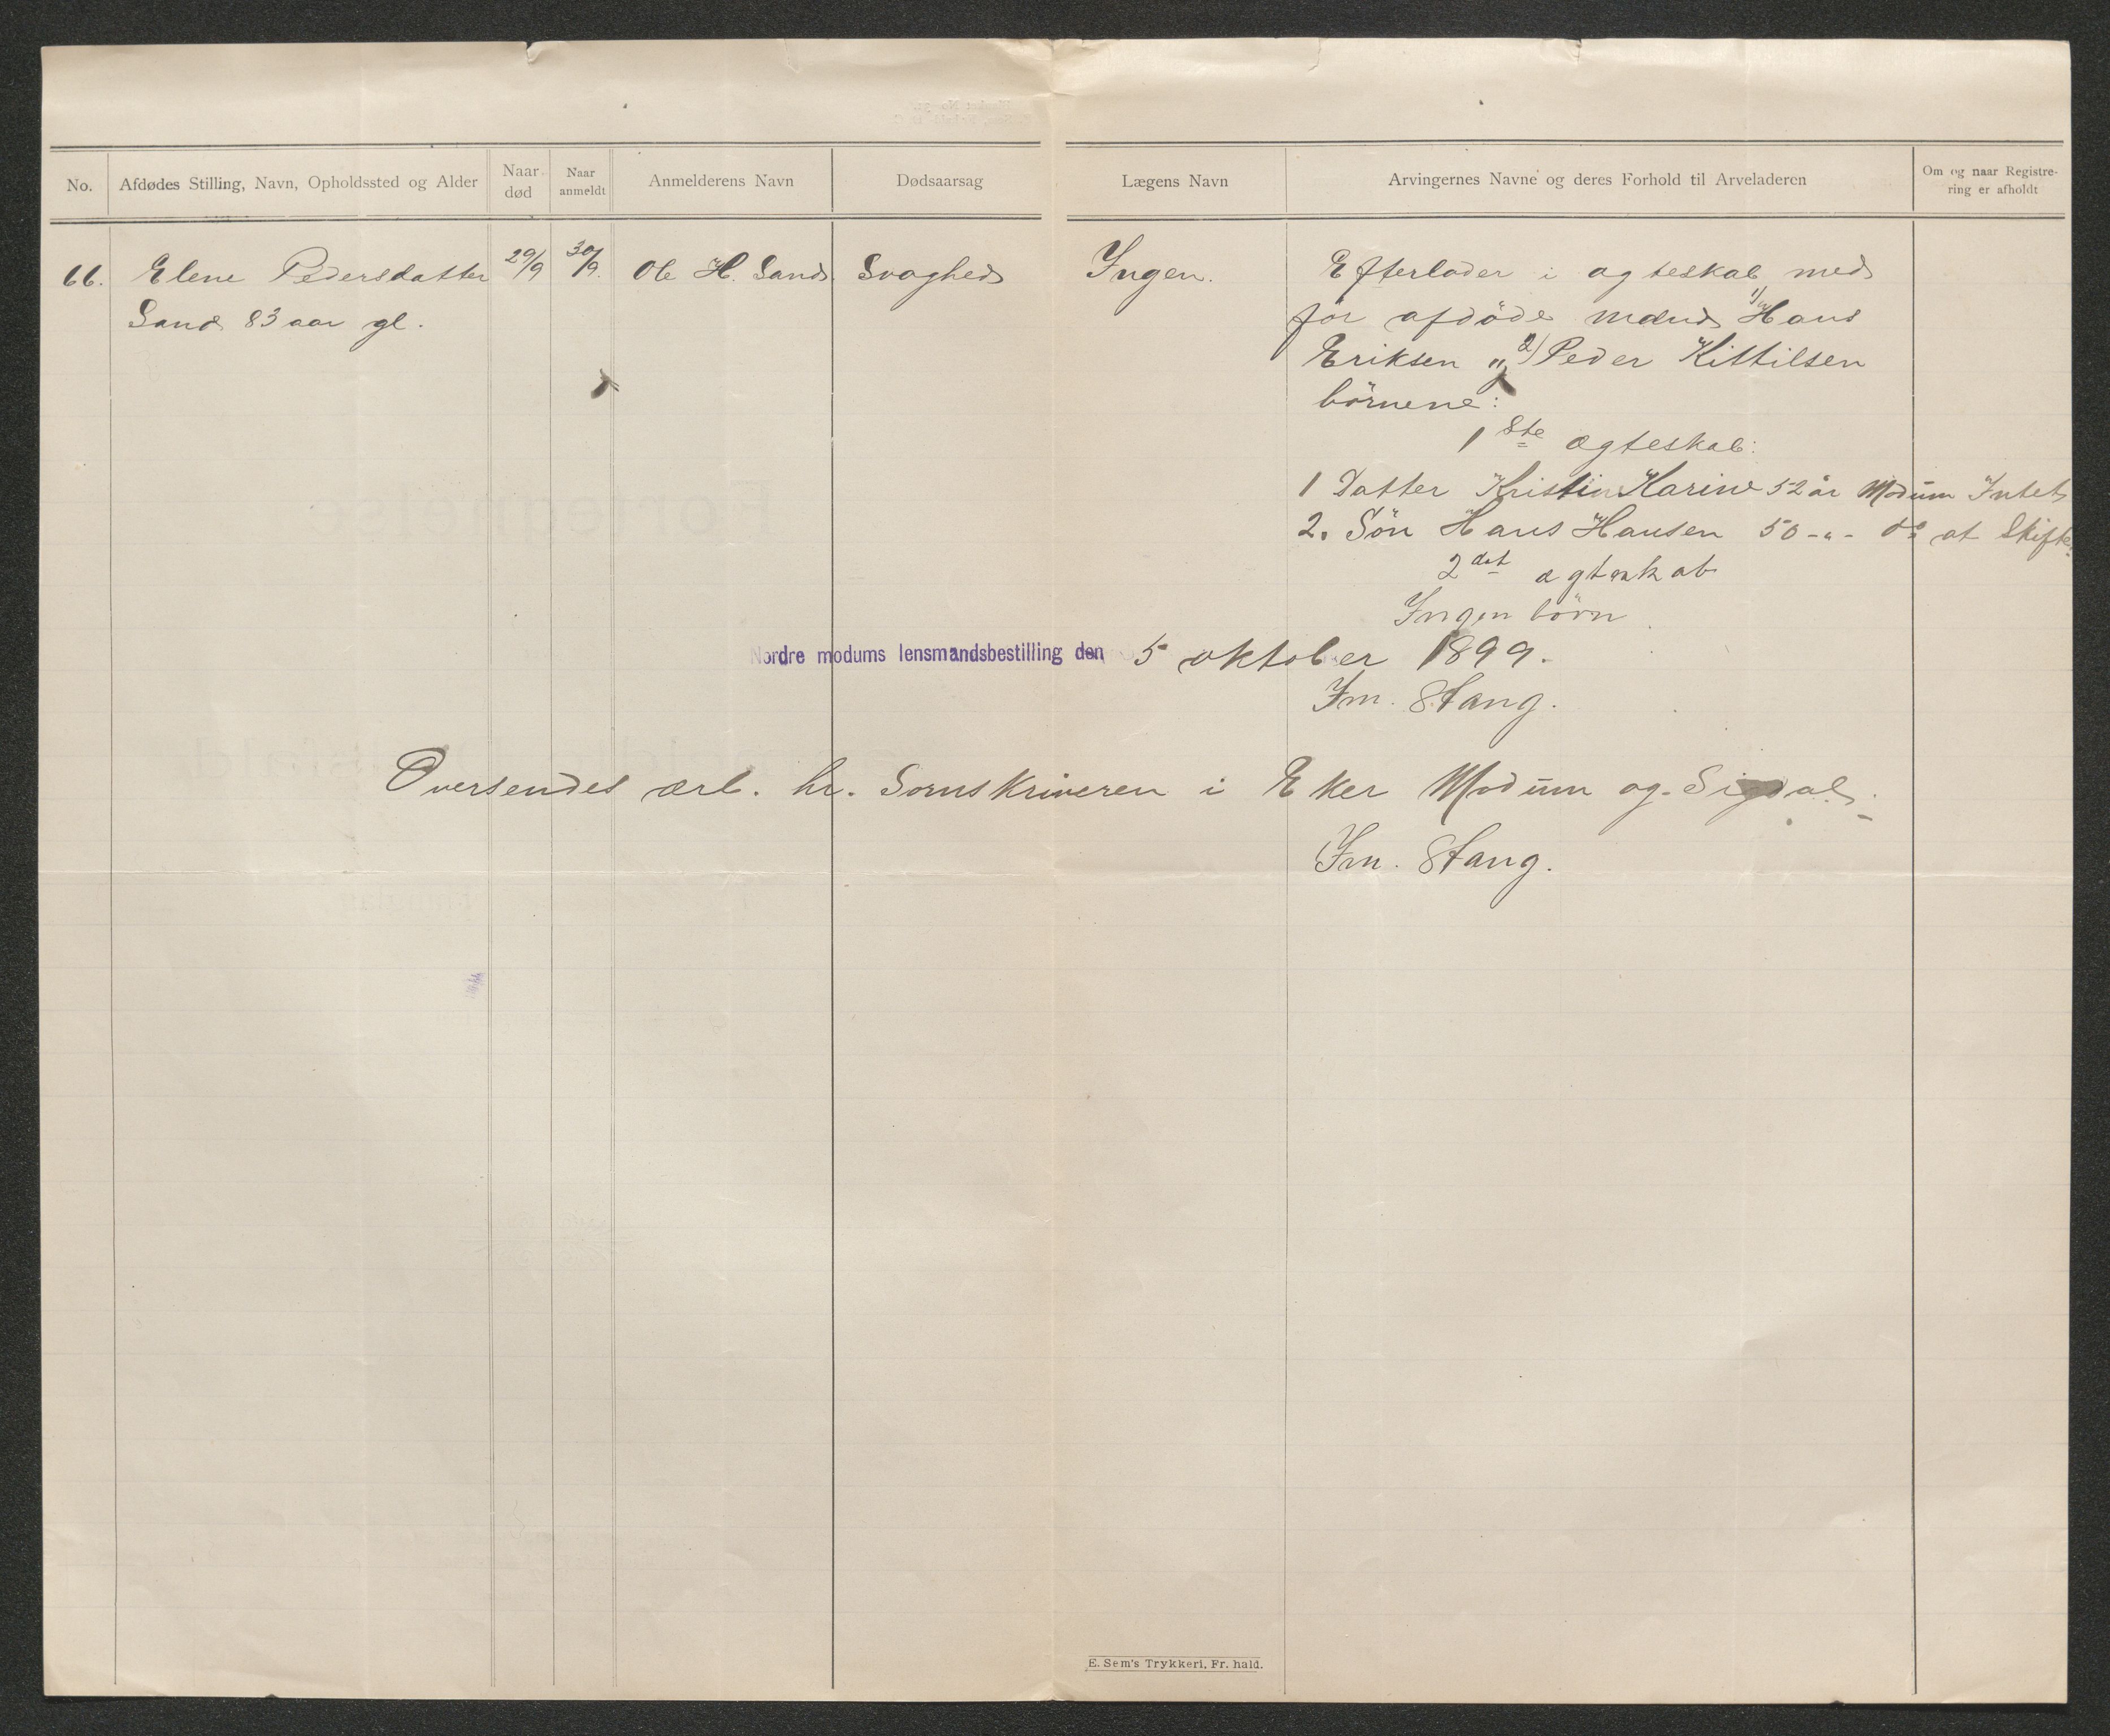 No.
Afdødes Stilling, Navn, Opholdssted og Alder
Naar død
Naar anmeldt
Anmelderens Navn
Dødsaarsag
Lægens Navn
Arvingernes Navne og deres Forhold til Arveladeren
Om og naar Registre-
ring er afholdt
66. Elene Pedersdatter 29/9 30/9. Ole H. Sand. Svaghed Ingen. Efterlader i ægteskab med
Sand 83 aar gl. før afdøde mænd 1) Hans
Eriksen " 2) Peder Kittilsen
børnene:
1ste ægteskab:
1 Datter Kristin Karine 52 år Modum Intet
2. Søn Hans Hansen 50 -"- do at Skifte.
2det ægteskab
Ingen børn
Nordre modums lensmandsbestilling den 5 oktober 1899.
Im. Stang.
Oversendes ærb. hr. Sornskriveren i Eker Modum og Sigdal.
Im. Stang.
E. Sem's Trykkeri, Fr. hald.